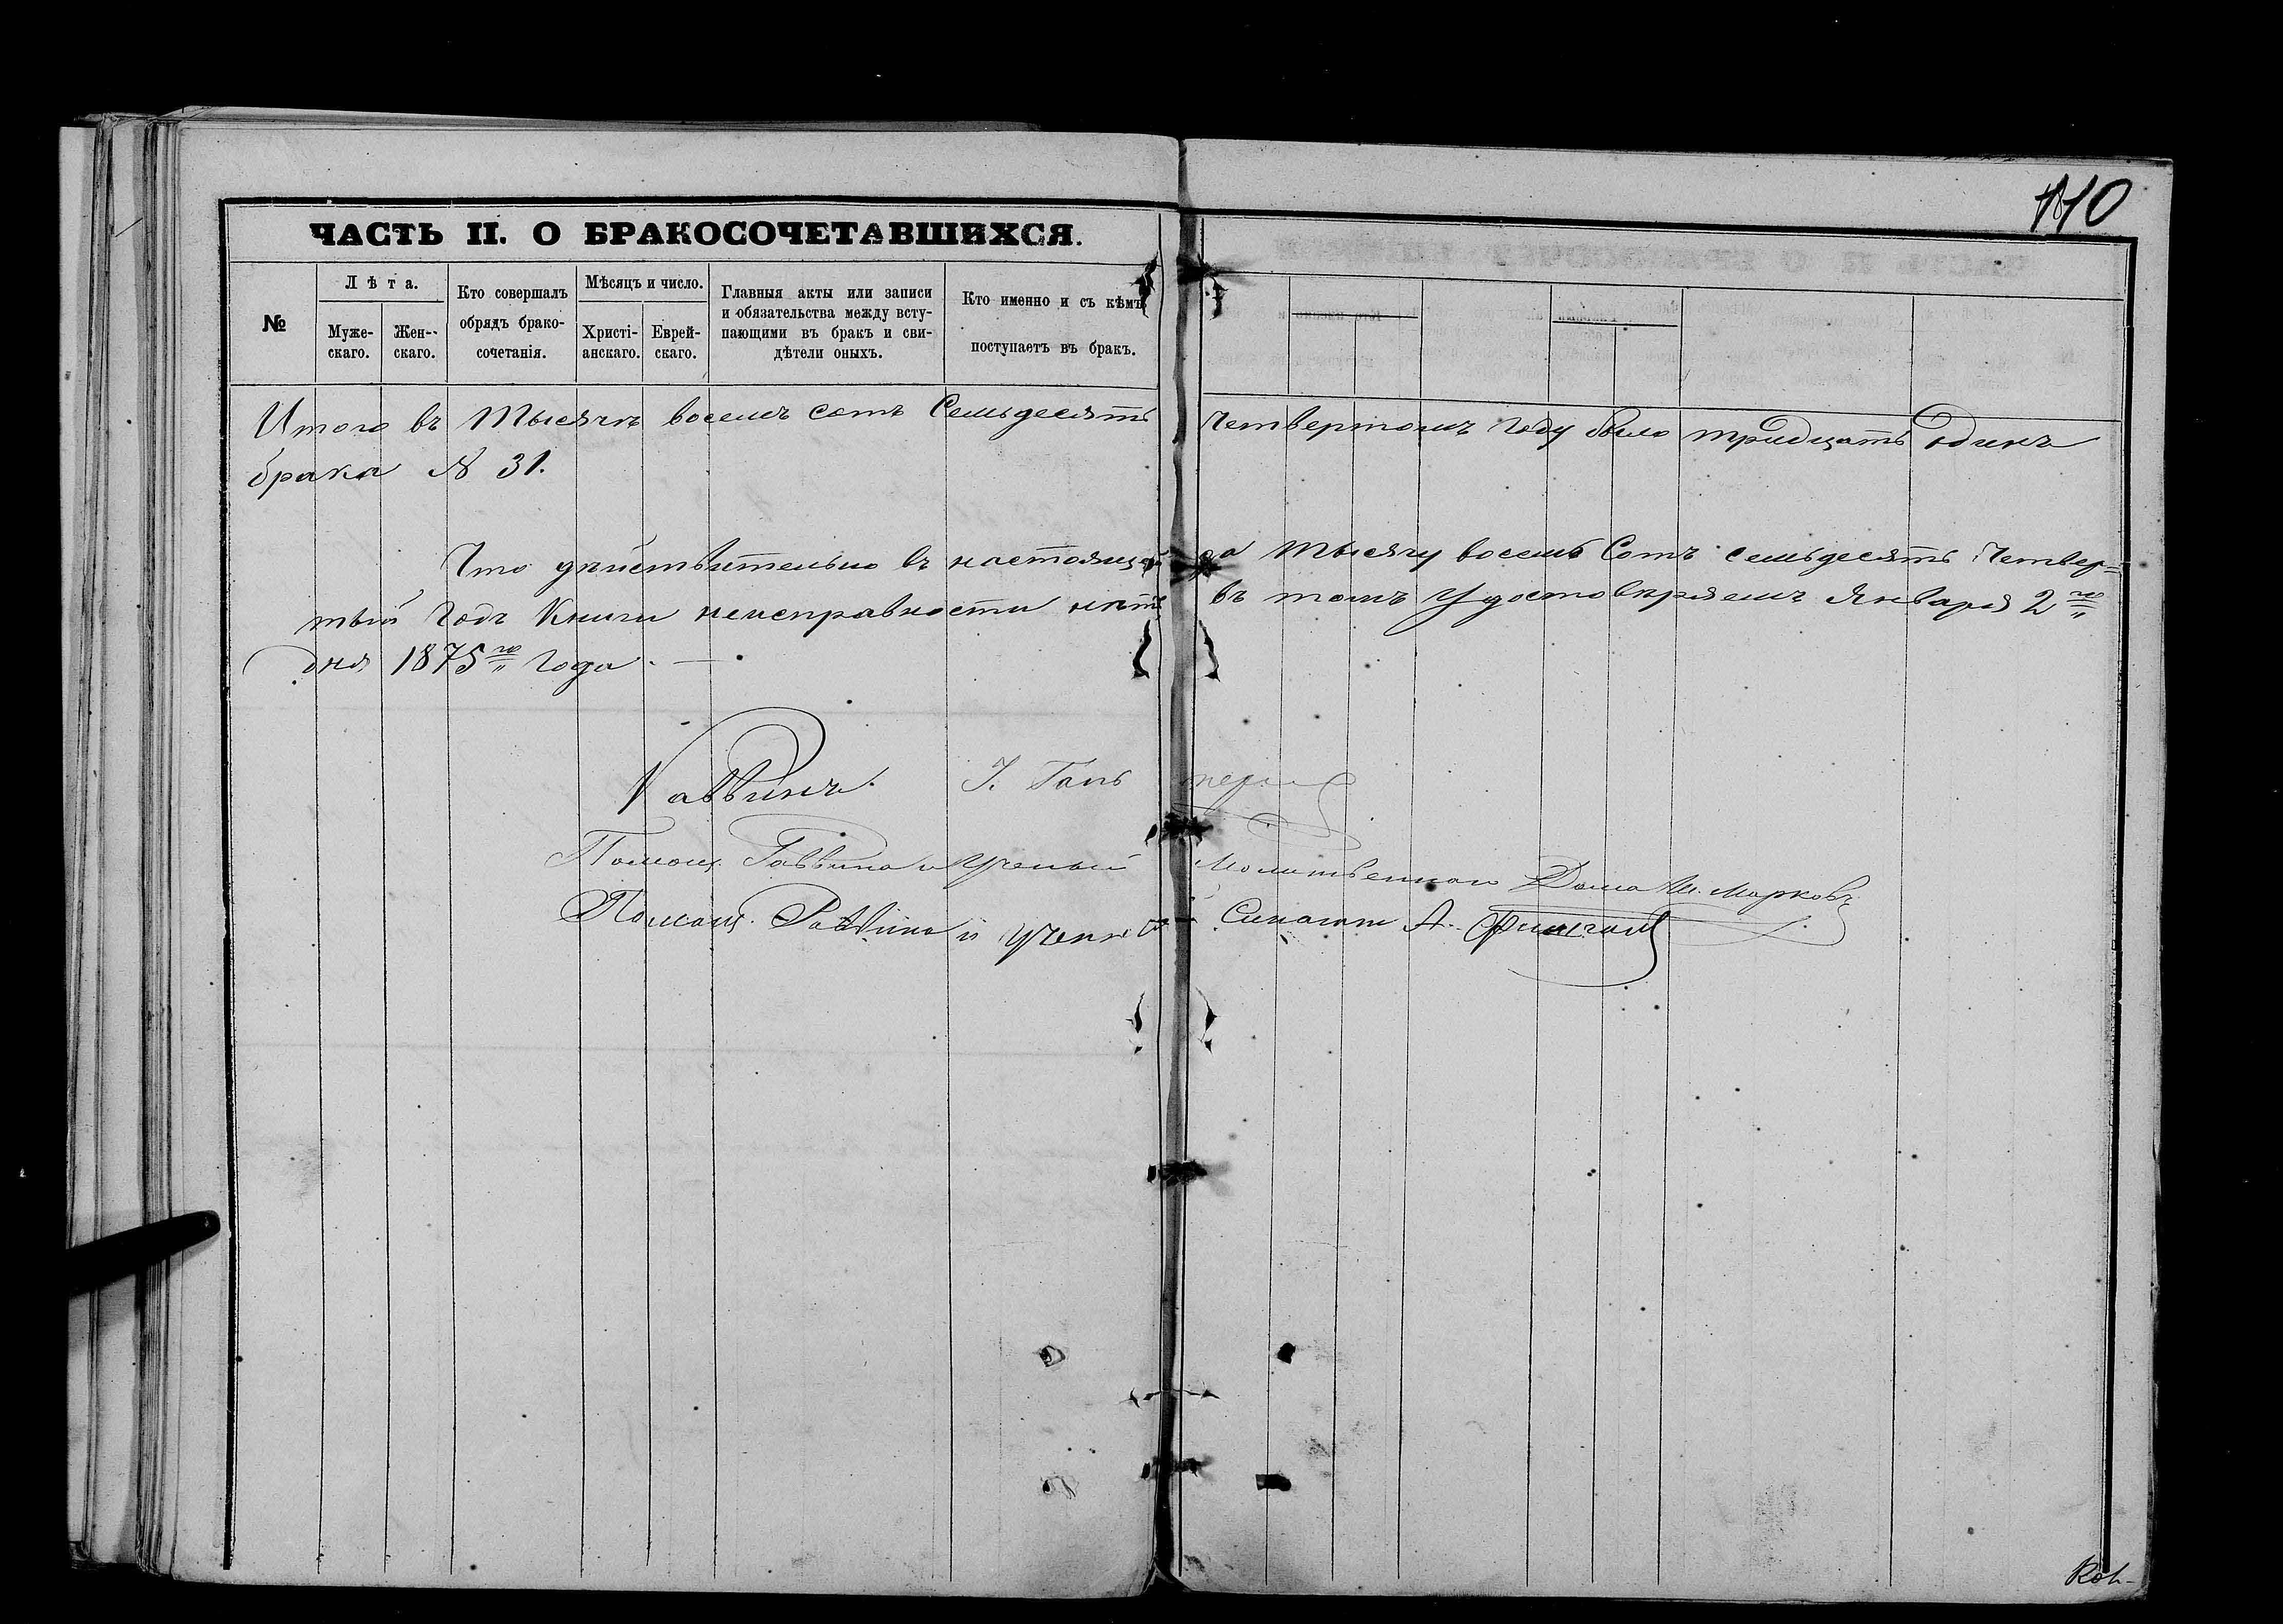 110
ЧАСТЬ II. О БРАКОСОЧЕТАВШИХСЯ.
№
Лѣта.
Муже-
скаго.
Жен-
скаго.
Кто совершалъ
обрядъ брако-
сочетанія.
Мѣсяцъ и число.
Христі-
анскаго.
Еврей-
скаго.
Главныя акты или записи
и обязательства между всту-
пающими въ бракъ и сви-
дѣтели оныхъ.
Кто именно и съ кѣмъ
поступаетъ въ бракъ.
Итого въ Тысяча восемъ сотъ Семьдесять Четвертомъ году было тридцать Одинъ
брака № 31.
Что дѣйствительно въ настоящей за тысячу восемь Сотъ семьдесять Четвер=
тый Годъ Книги неисправности нѣтъ въ томъ Удостовѣряемъ Января 2го
дня 1875го Года. —
Раввинъ. І.
Помощ. Раввина и Ученый Молитвеннаго Дома М. Марковъ
Помощ. Раввина и Ученый Синагоги А.